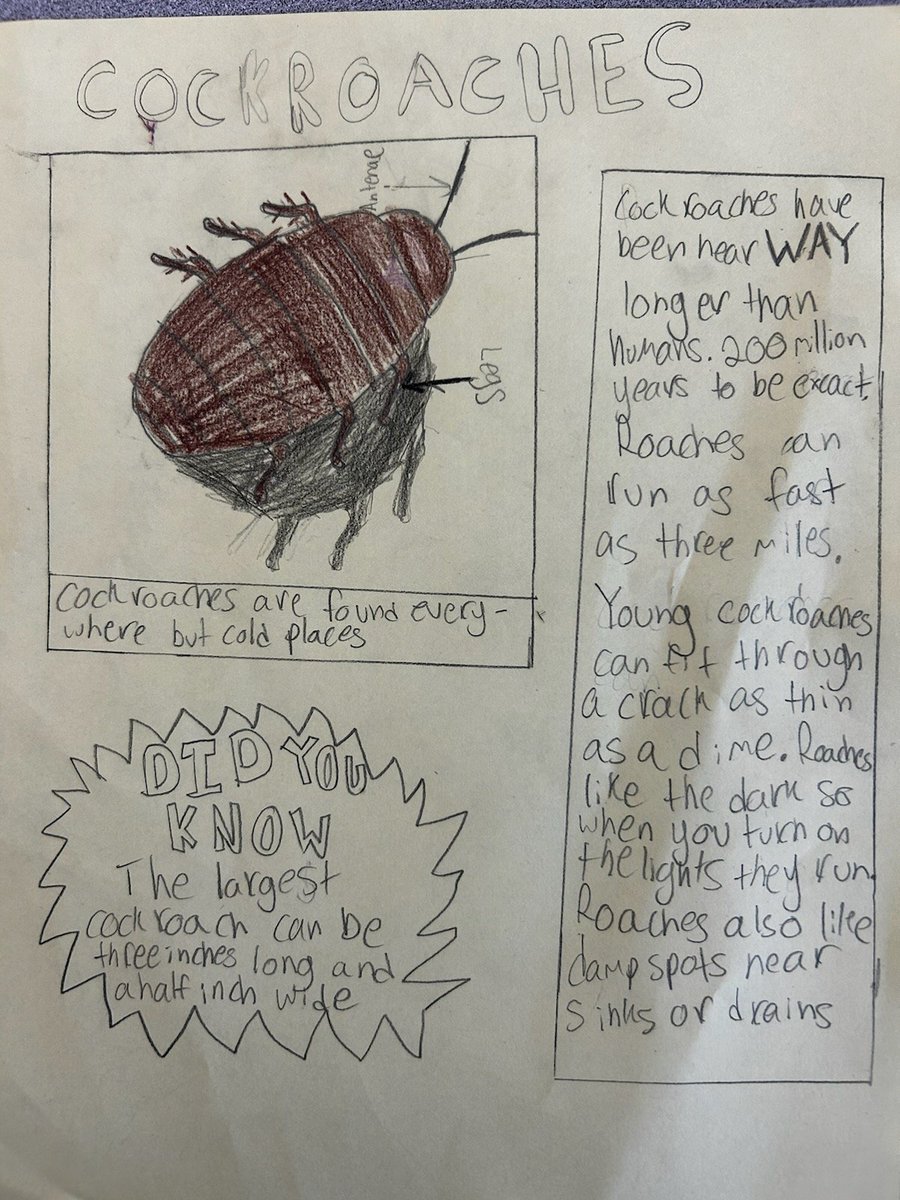 COCKROACHES
Antenae
Legs
Cockroaches are found every-
where but cold places
DID YOU
KNOW
The largest
cockroach can be
three inches long and
a half inch wide
Cockroaches have
been hear WAY
longer than
humans. 200 million
years to be exact.
Roaches can
run as fast
as three miles.
Young cockroaches
can fit through
a crack as thin
as a dime. Roaches
like the dark so
when you turn on
the lights they run.
Roaches also like
damp spots near
sinks or drains